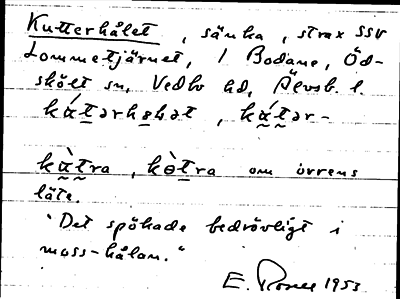 Kutterhålet, sänka, strax SSV
Lommetjärnet, 1 Bodane, Öd-
skölt sn, Vedbo hd, Älvsb. l.
kát̰ərhəlet, kát̰ər-
kàt̰ra, kòt̰ra om orrens
läte.
"Det spökade bedrövligt i
moss-hålan."
E. 1953